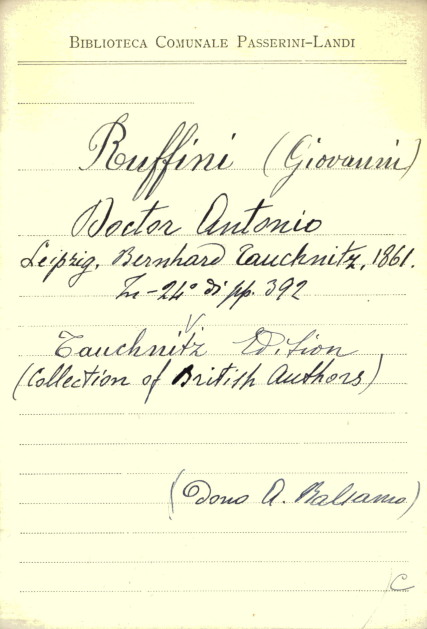 BIBLIOTECA COMUNALE PASSERINI–LANDI
Ruffini (Giovanni)
Doctor Antonio
Leipzig, Bernhard Tauchnitz, 1861.
In-24° di pp. 392
Tauchnitz Edition
(Collection of British Authors)
(Dono A. Balsamo)
C